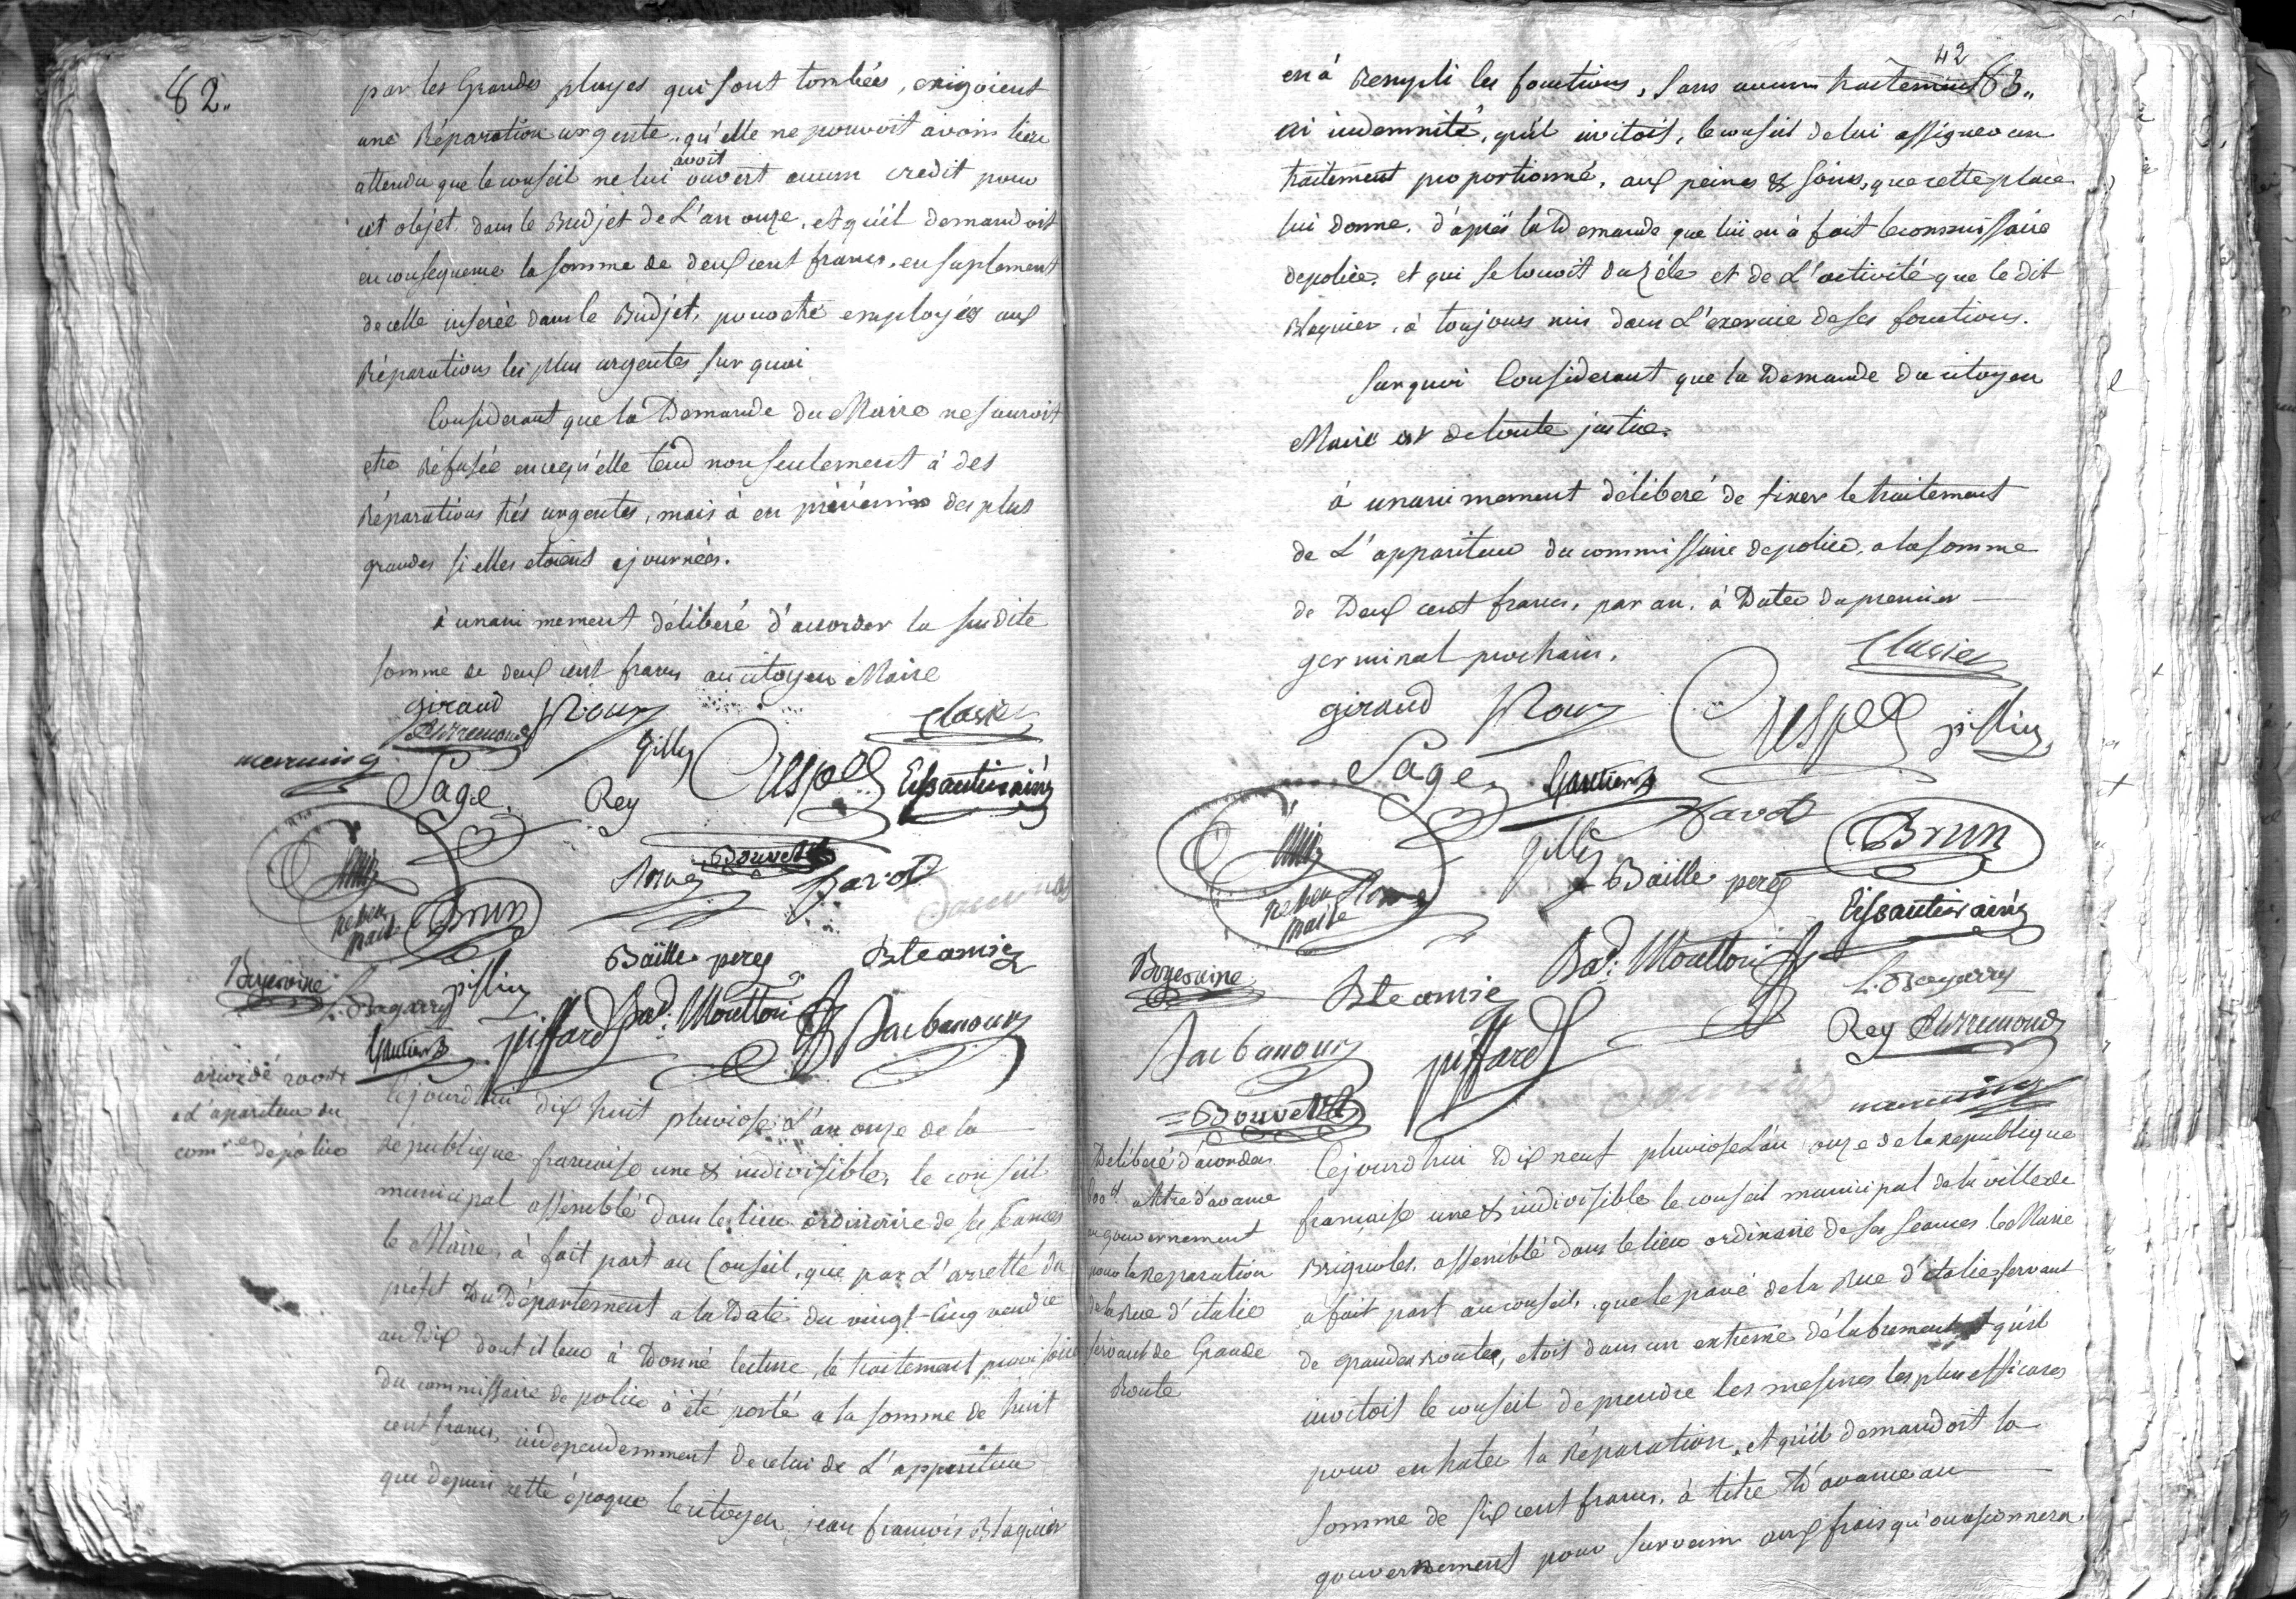 82.
par les Grandes pluyes qui sont tombées, exigoient
une Réparation urgente, qu'elle ne pouvoit avoir lieu
attendu que le conseil ne lui avoit ouvert aucun credit pour
cet objet, dans le Budjet de L'an onze, et qu'il demandoit
en consequence la somme de deux cent francs, en suplement
de celle inserée dans le Budjet, pour etre employés aux
Réparations les plus urgentes, sur quoi
Considerant que la Demande du Maire ne sauroit
etre Réfusée en ce qu'elle tend non seulement à des
Réparations trés urgentes, mais à en prévénir des plus
grandes si elles etoient ajournées.
à unanimement déliberé d'accorder la susdite
somme de deux cent francs au citoyen Maire
giraud Roux Clavier
mercurin
Sage Rey Gilly Crespel Eissautier ainé
Bouvet Favot
Brun
Baille pere
L. Bagarry
Gautier piffard Bd. Moutton Barbaroux
accordé 200 ff
a L'apariteur du
comre de police
Cejourd'hui dix huit pluviose L'an onze de la
République francaise une & indivisible, le conseil
municipal assemblé dans le lieu ordinaire de ses seances
le Maire, à fait part au Conseil, que par L'arretté du
préfet Du Département a la Date du vingt-Cinq vendre
an Dix dont il leur à Donné lecture, le traitement provisoire
du commissaire de police à été porté a la somme de huit
cent francs, indépendemment de celui de L'appariteur
que depuis cette époque le citoyen jean francois Blaquier
42
83.,
en à Rempli les fonctions, sans aucun traitement
ni indemnité, qu'il invitoit, le conseil de lui assigner un
traitement proportionné, aux peines & soins, que cette place
lui donne, d'après la Demande que lui en à fait le commissaire
de police, et qui se louoit du zéle et de L'activité que le dit
Blaquier, à toujours mis dans L'exercice de ses fonctions.
Sur quoi Considerant que la Demande du citoyen
Maire est de toute justice.
à unanimement déliberé de fixer le traitement
de L'appariteur du commissaire de police, a la somme
de Deux cent francs, par an, à Dater du premier
germinal prochain.
Clavier
giraud Roux Crespel
Sage Gautier Favot
Gilly Brun
Baille pere
Eissautier ainé
Bd. Moutton
L. Bagarry
Barbaroux piffard Rey
Bouvet
Déliberé d'accorder
600 ff. a titre d'avance
au gouvernement
pour la Reparation
de la Rue d'italie
servant de Grande
Route
Cejourd'hui Dix neuf pluviose L'an onze de la République
francaise une & indivisible le conseil municipal de la ville de
Brignoles, assemblé dans le lieu ordinaire de ses seances le Maire
a fait part au conseil, que le pavé de la Rue d'italie servant
de grandes Routes, etoit dans un extrême délabrement et qu'il
invitoit le conseil de prendre les mesures les plus efficaces
pour en hater la Réparation, et qu'il demandoit la
somme de six cent francs, à titre D'avance au
gouvernement pour survenir aux frais qu'occasionnera